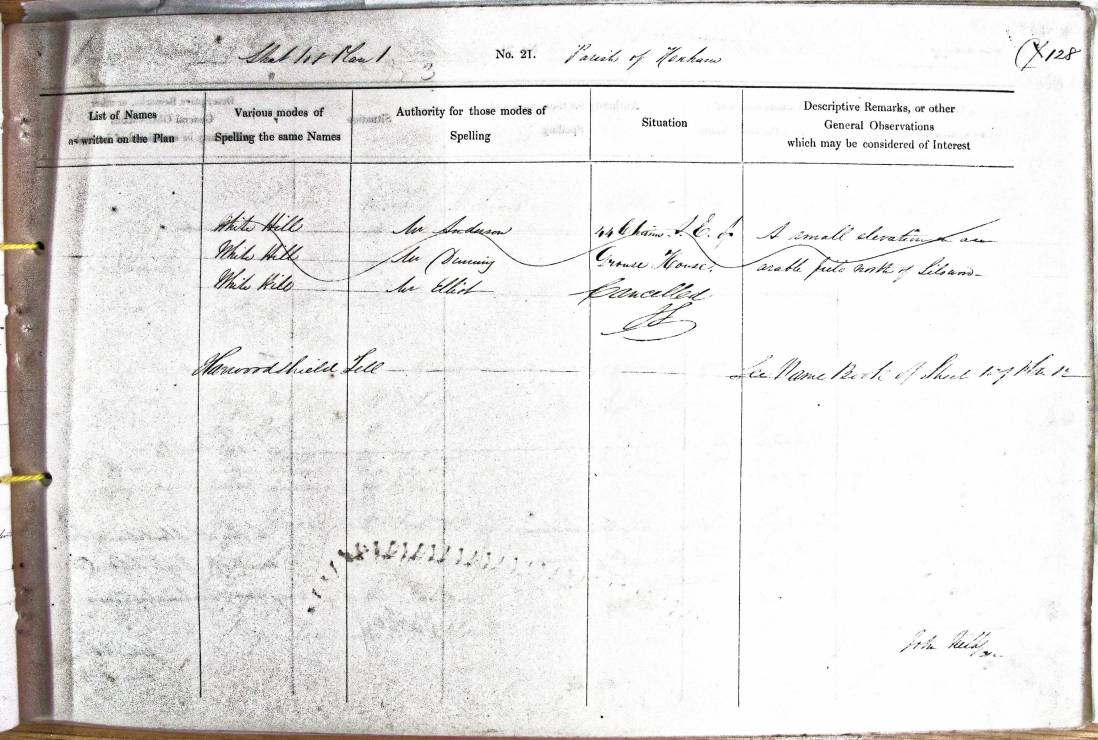 Sheet 108 Plan 1 No. 21. Parish of Hexham 128
3
List of Names as written on the Plan
Various modes of Spelling the same Names
Authority for those modes of Spelling
Situation
Descriptive Remarks, or other General Observations which may be considered of Interest
White Hill Mr Anderson 44 Chains S. E. of A small elevation in an
White Hill Mr Dinning Grouse House. arable field north of Lilswood
White Hill Mr Elliot Cancelled
Harwoodshield Fell See Name Book of Sheet
John